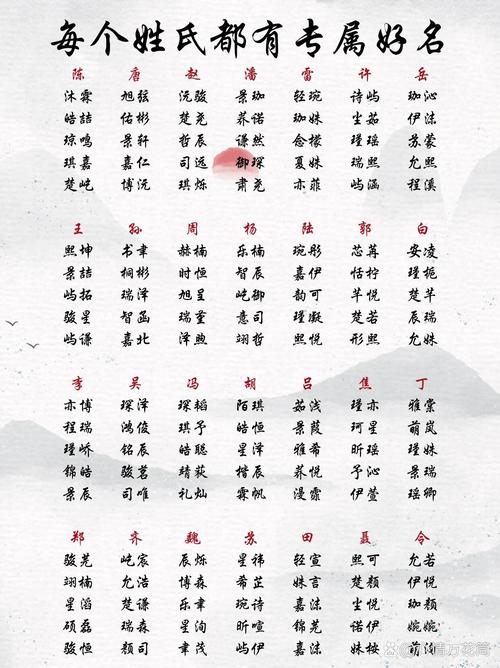 每个姓氏都有专属好名
陈 唐 赵 潘 雷 许 岳
沐霖 旭弦 沅骏 景珈 轻琬 诗屿 珈沁
皓喆 佑彬 楚尧 荞诺 珈姝 尘茹 伊沫
琼鸣 景轩 哲辰 谦然 念檬 瑾瑶 苏蒙
琪嘉 嘉仁 司远 御琛 夏姝 瑞熙 允熙
楚屹 博沅 琪烁 肃尧 亦菲 屿涵 程溪
王 孙 周 杨 陆 郭 白
熙坤 书聿 赫楠 乐楠 琬彤 芯苒 安凌
景喆 桐彬 时恒 智辰 嘉伊 恬柠 瑾栀
屿拓 瑞泽 旭呈 屹御 韵可 芊悦 楚芊
骏星 智函 瑞堇 意司 瑾凝 楚若 辰瑞
屿谦 嘉北 泽煦 翊哲 熙悦 彤熙 允姝
李 吴 冯 胡 吕 焦 丁
亦博 琛泽 琛韬 陌琪 茹浅 瑾亦 雅棠
程瑞 鸿俊 琪予 皓熙 景葭 珂星 萌岚
瑾峤 铭辰 皓聪 星泽 雅希 昕瑶 瑾姝
锦皓 骏茗 靖荻 楷辰 荞悦 予沁 景瑞
景辰 司唯 礼灿 霖帆 漫霏 伊萱 瑶卿
郑 齐 魏 苏 田 聂 令
骏尧 屹宸 辰烁 星祎 轻宣 熙可 允若
翊楠 允浩 博森 希芷 姝言 楚颜 伊悦
星滔 楚谦 乐聿 琬诗 嘉沫 尘悦 珈颜
硕磊 瑞森 星洵 昕喧 锦芫 诺伊 婉婉
骏恒 颜司 聿茂 屿伊 熙沫 姝桉